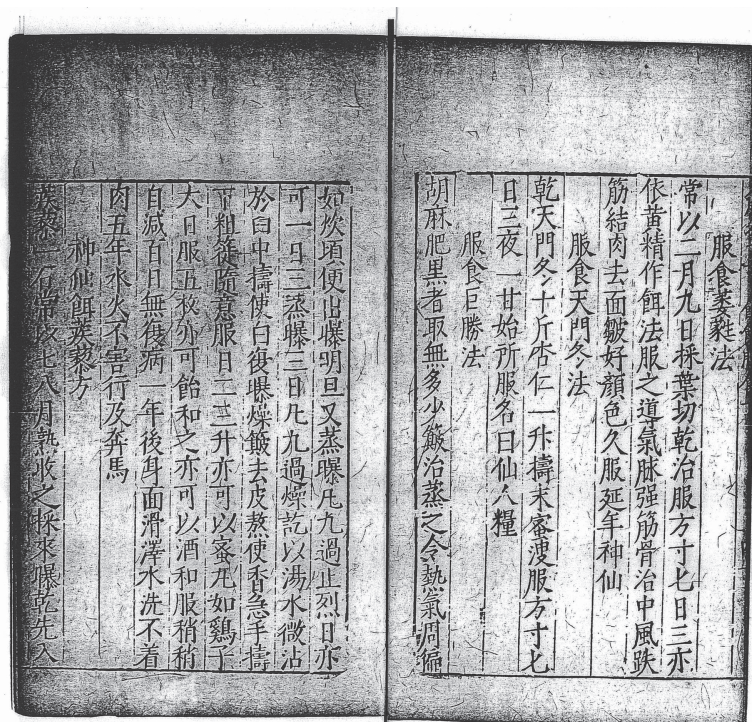 服食萎蕤法
常以二月九日採葉切乾治服方寸匕日三亦
依黃精作餌法服之導氣脉强筋骨治中風跌
筋結肉去面皺好顏色久服延年神仙
服食天門冬法
乾天門冬十斤杏仁一升擣末蜜溲服方寸匕
日三夜一甘始所服名曰仙人糧
服食巨勝法
胡麻肥黑者取無多少簸治蒸之令熱氣周徧
如炊頃便出曝明旦又蒸曝凡九過止烈日亦
可一日三蒸曝三日凡九過燥訖以湯水微沾
於臼中擣使白復曝燥簸去皮熬使香急手擣
下粗簁隨意服日二三升亦可以蜜丸如鷄子
大日服五枚亦可飴和之亦可以酒和服稍稍
自減百日無復病一年後身面滑澤水洗不着
肉五年水火不害行及奔馬
神仙餌蒺藜方
蒺藜一石常以七八月熟收之採來曝乾先入